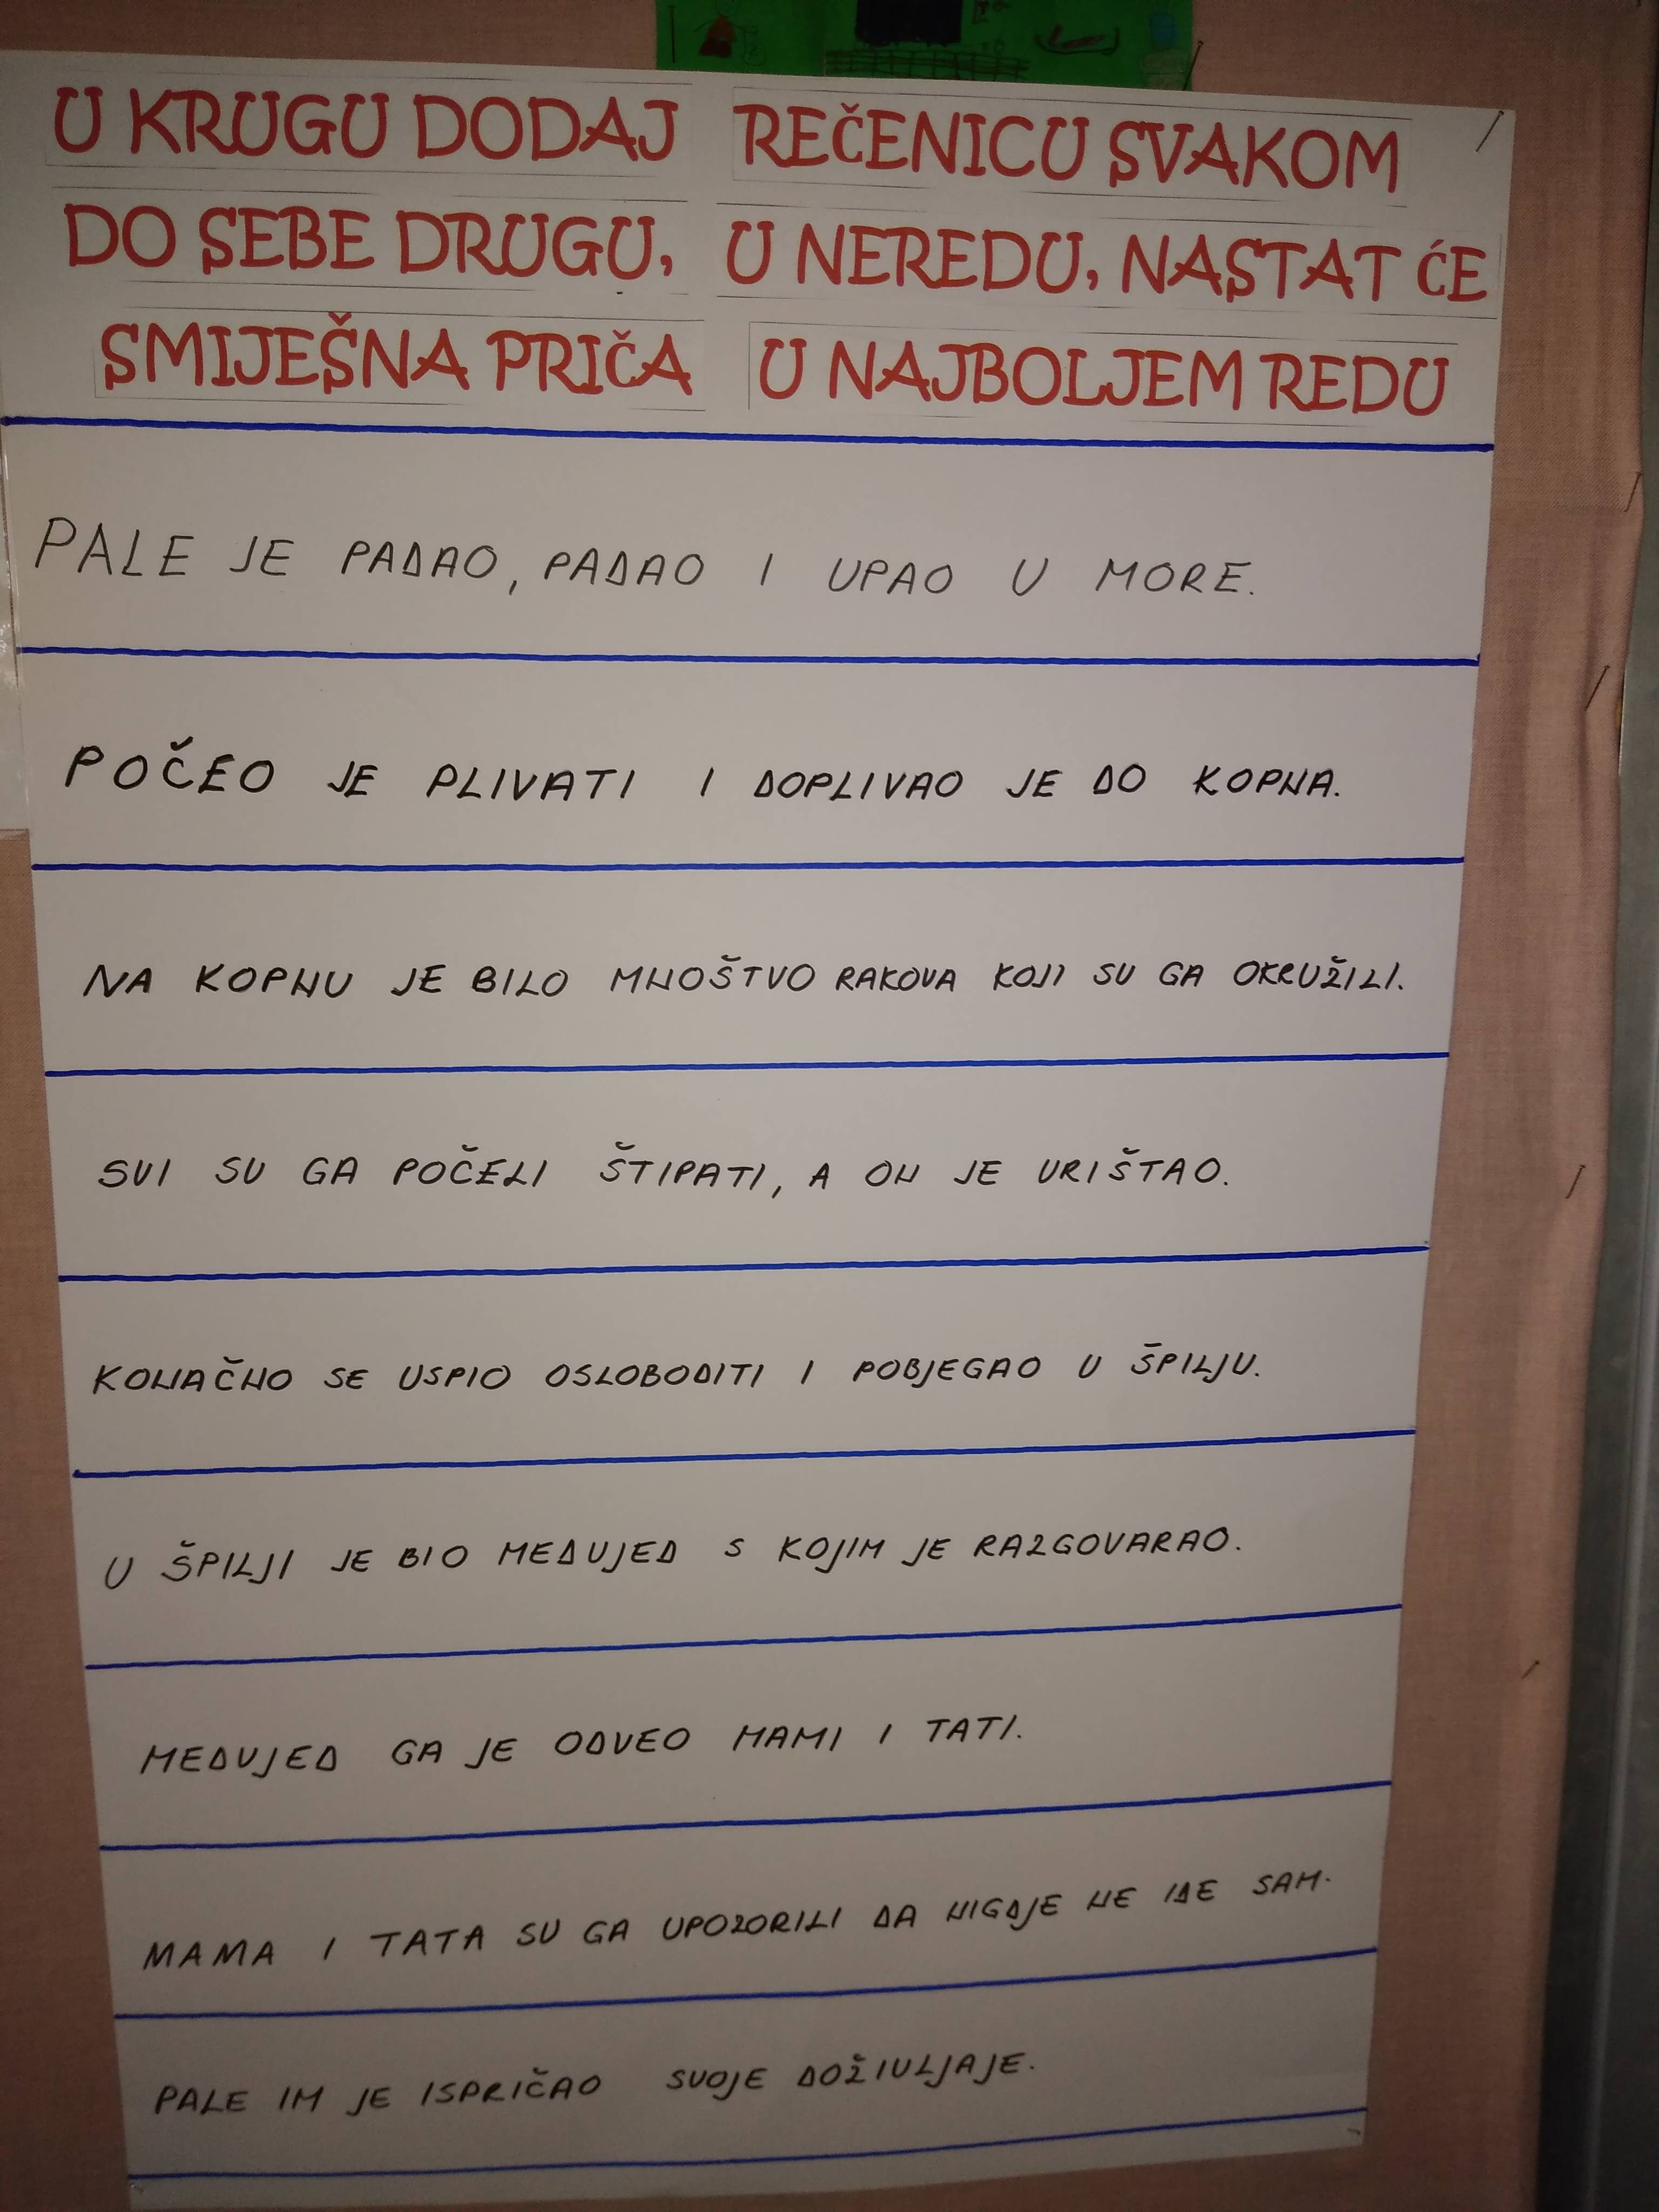 U KRUGU DODAJ REČENICU SVAKOM
DO SEBE DRUGU, U NEREDU, NASTAT ĆE
SMIJEŠNA PRIČA U NAJBOLJEM REDU
PALE JE PADAO, PADAO I UPAO U MORE.
POČEO JE PLIVATI I DOPLIVAO JE DO KOPNA.
NA KOPNU JE BILO MNOŠTVO RAKOVA KOJI SU GA OKRUŽILI.
SVI SU GA POČELI ŠTIPATI, A ON JE VRIŠTAO.
KONAČNO SE USPIO OSLOBODITI I POBJEGAO U ŠPILJU.
U ŠPILJI JE BIO MEDVJED S KOJIM JE RAZGOVARAO.
MEDVJED GA JE ODVEO MAMI I TATI.
MAMA I TATA SU GA UPOZORILI DA NIGDJE NE IDE SAM.
PALE IM JE ISPRIČAO SVOJE DOŽIVLJAJE.